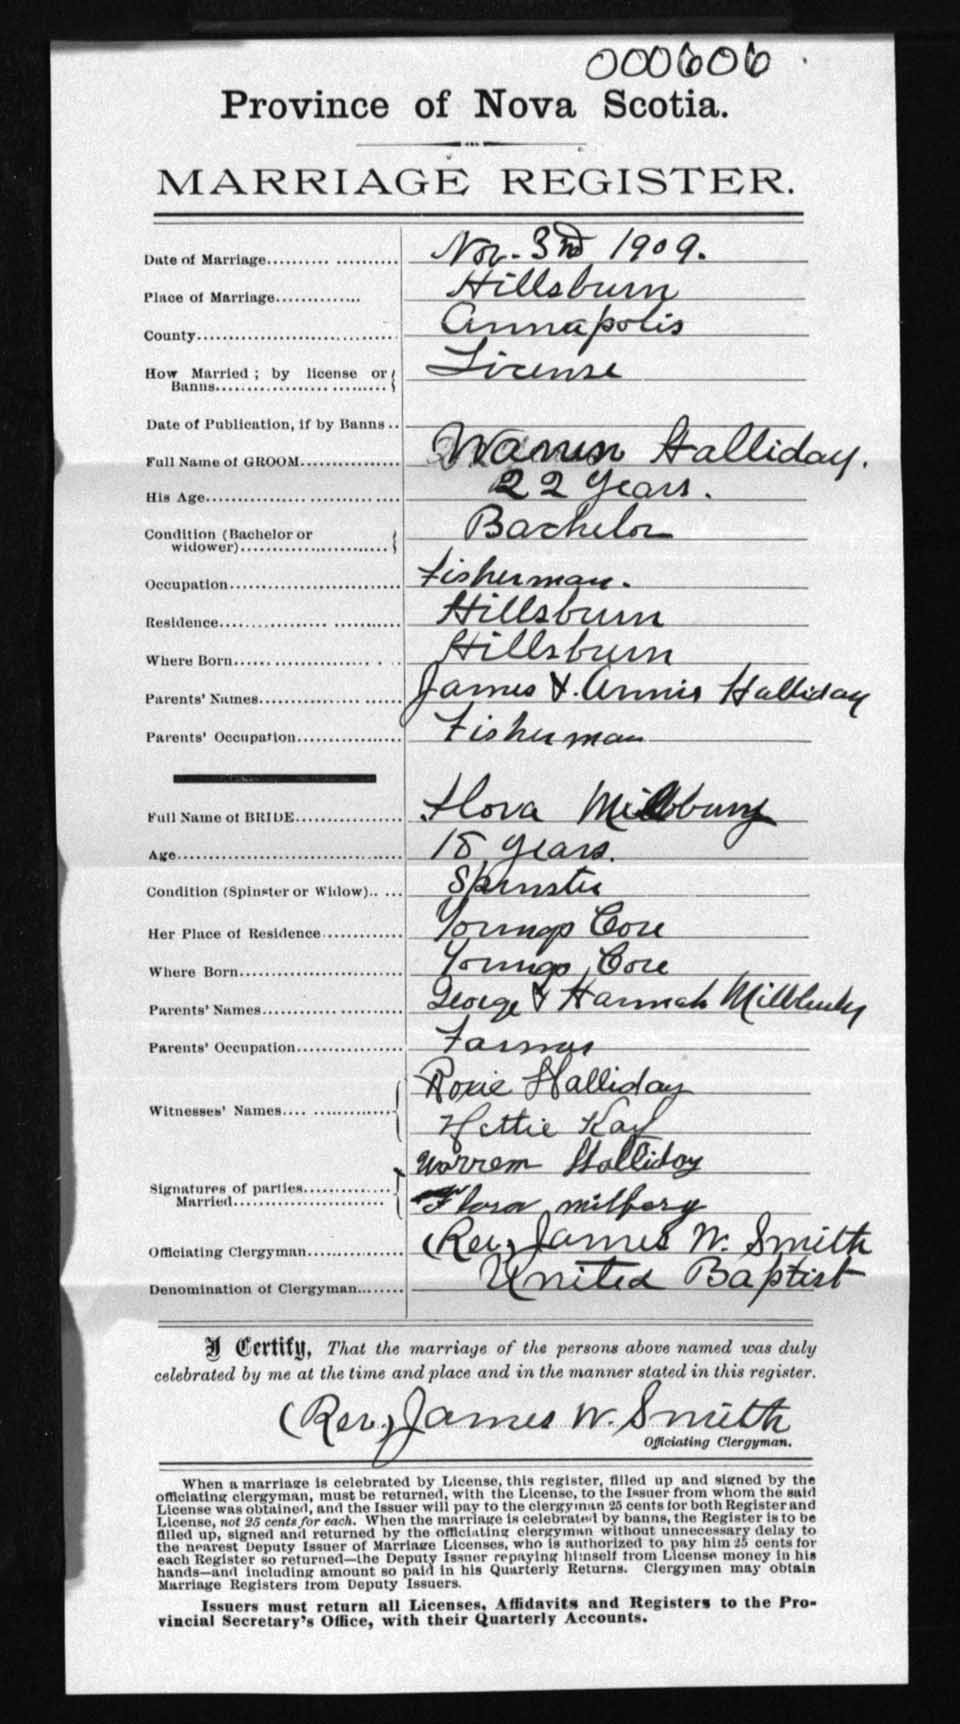 000606
Province of Nova Scotia.
MARRIAGE REGISTER.
Date of Marriage.......... Nov. 3rd, 1909.
Place of Marriage............. Hillsburn
County............................ Annapolis
How Married ; by license or Banns.................... License
Date of Publication, if by Banns ..
Full Name of GROOM................ Warren Halliday.
His Age.......................... 22 years.
Condition (Bachelor or widower)...................... Bachelor
Occupation........................ Fisherman.
Residence......................... Hillsburn
Where Born....................... Hillsburn
Parents' Names.................... James & Annie Halliday
Parents' Occupation................ Fisherman
Full Name of BRIDE................. Flora Millbury
Age................................ 18 years.
Condition (Spinster or Widow).. ... Spinster
Her Place of Residence............. Youngs Cove
Where Born......................... Youngs Cove
Parents' Names..................... George & Hannah Millbury
Parents' Occupation................ Farmer
Witnesses' Names................... Roxie Halliday
Hettie Kay
Signatures of parties Married...................... Warrem Halliday
Flora milbery
Officiating Clergyman.............. (Rev.) James W. Smith
Denomination of Clergyman....... United Baptist
I Certify, That the marriage of the persons above named was duly
celebrated by me at the time and place and in the manner stated in this register.
(Rev.) James W. Smith
Officiating Clergyman.
When a marriage is celebrated by License, this register, filled up and signed by the
officiating clergyman, must be returned, with the License, to the Issuer from whom the said
License was obtained, and the Issuer will pay to the clergyman 25 cents for both Register and
License, not 25 cents for each. When the marriage is celebrated by banns, the Register is to be
filled up, signed and returned by the officiating clergyman without unnecessary delay to
the nearest Deputy Issuer of Marriage Licenses, who is authorized to pay him 25 cents for
each Register so returned—the Deputy Issuer repaying himself from License money in his
hands—and including amount so paid in his Quarterly Returns. Clergymen may obtain
Marriage Registers from Deputy Issuers.
Issuers must return all Licenses, Affidavits and Registers to the Pro-
vincial Secretary's Office, with their Quarterly Accounts.